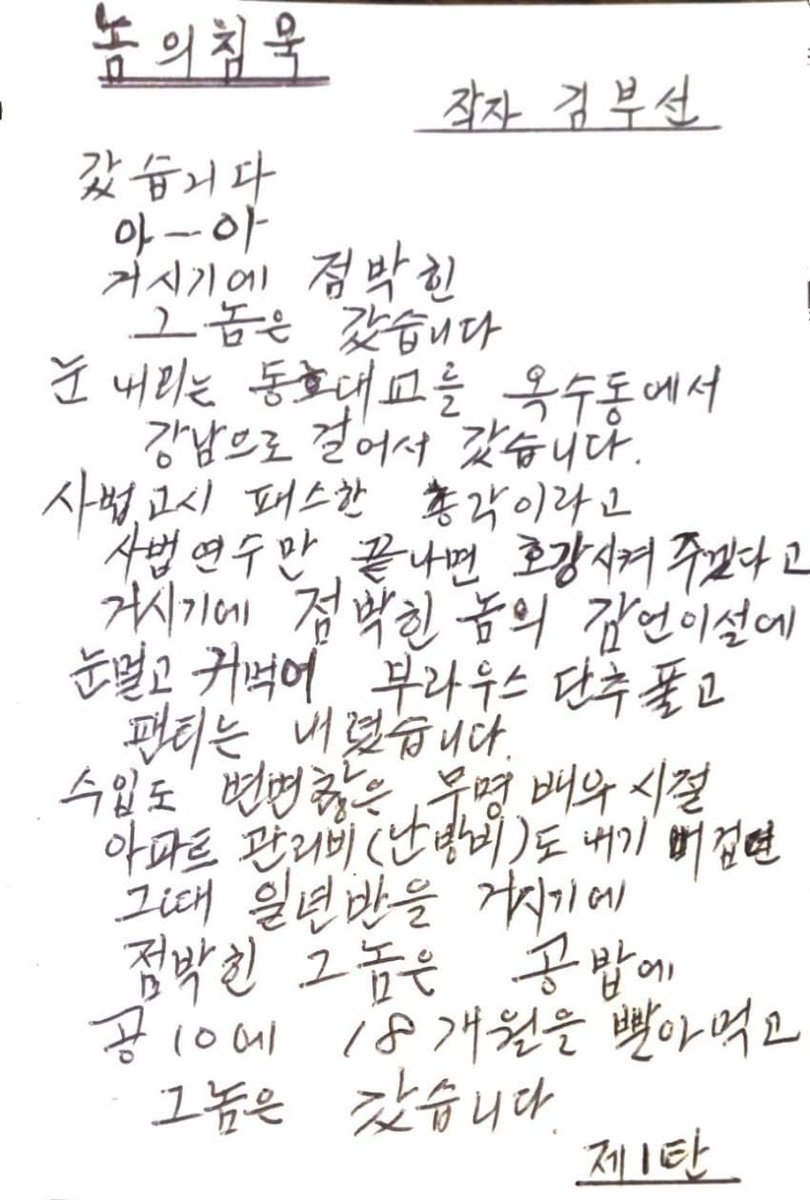 놈의침묵
작자 김부선
갔습니다
아-아
거시기에 점박힌
그 놈은 갔습니다
눈 내리는 동호대교를 옥수동에서
강남으로 걸어서 갔습니다.
사법고시 패스한 총각이라고
사법연수만 끝나면 호강시켜 주겠다고
거시기에 점박힌 놈의 감언이설에
눈멀고 귀먹어 부라우스 단추 풀고
팬티는 내렸습니다.
수입도 변변찮은 무명 배우 시절
아파트 관리비(난방비)도 내기 버겁던
그때 일년반을 거시기에
점박힌 그놈은 공밥에
공10에 18개월을 빨아먹고
그놈은 갔습니다.
제1탄